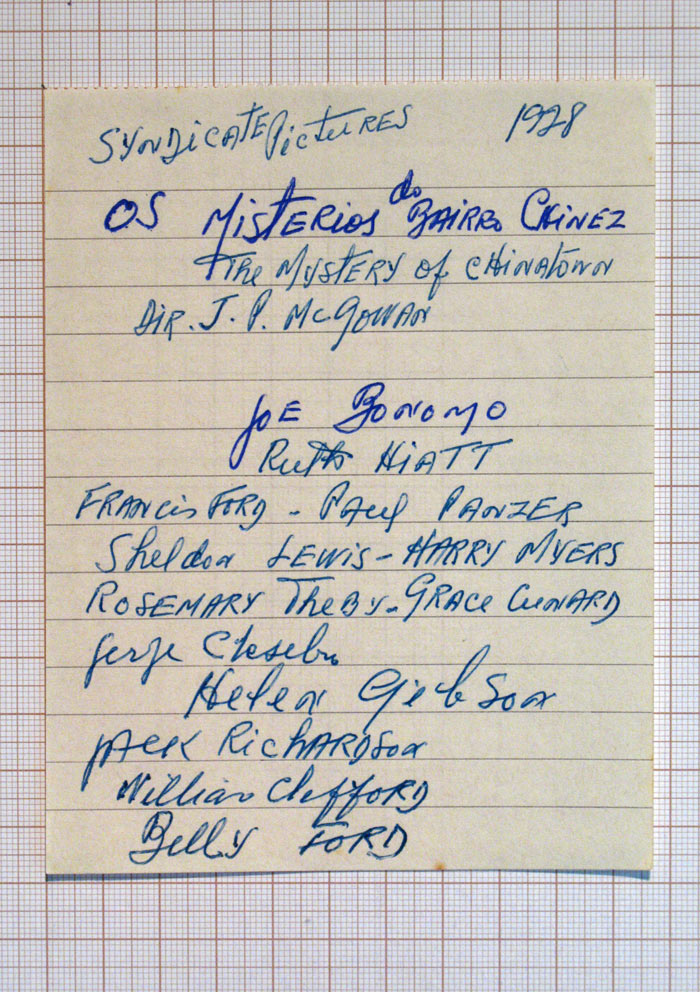 Syndicate Pictures 1928
Os Misterios do Bairro Chinez
The Mystery of Chinatown
Dir. J. P. McGowan
Joe Bonomo
Ruth Hiatt
Francis Ford - Paul Panzer
Sheldon Lewis - Harry Myers
Rosemary Theby - Grace Cunard
Helen Gibson
Jack Richardson
William Clifford
Billy Ford